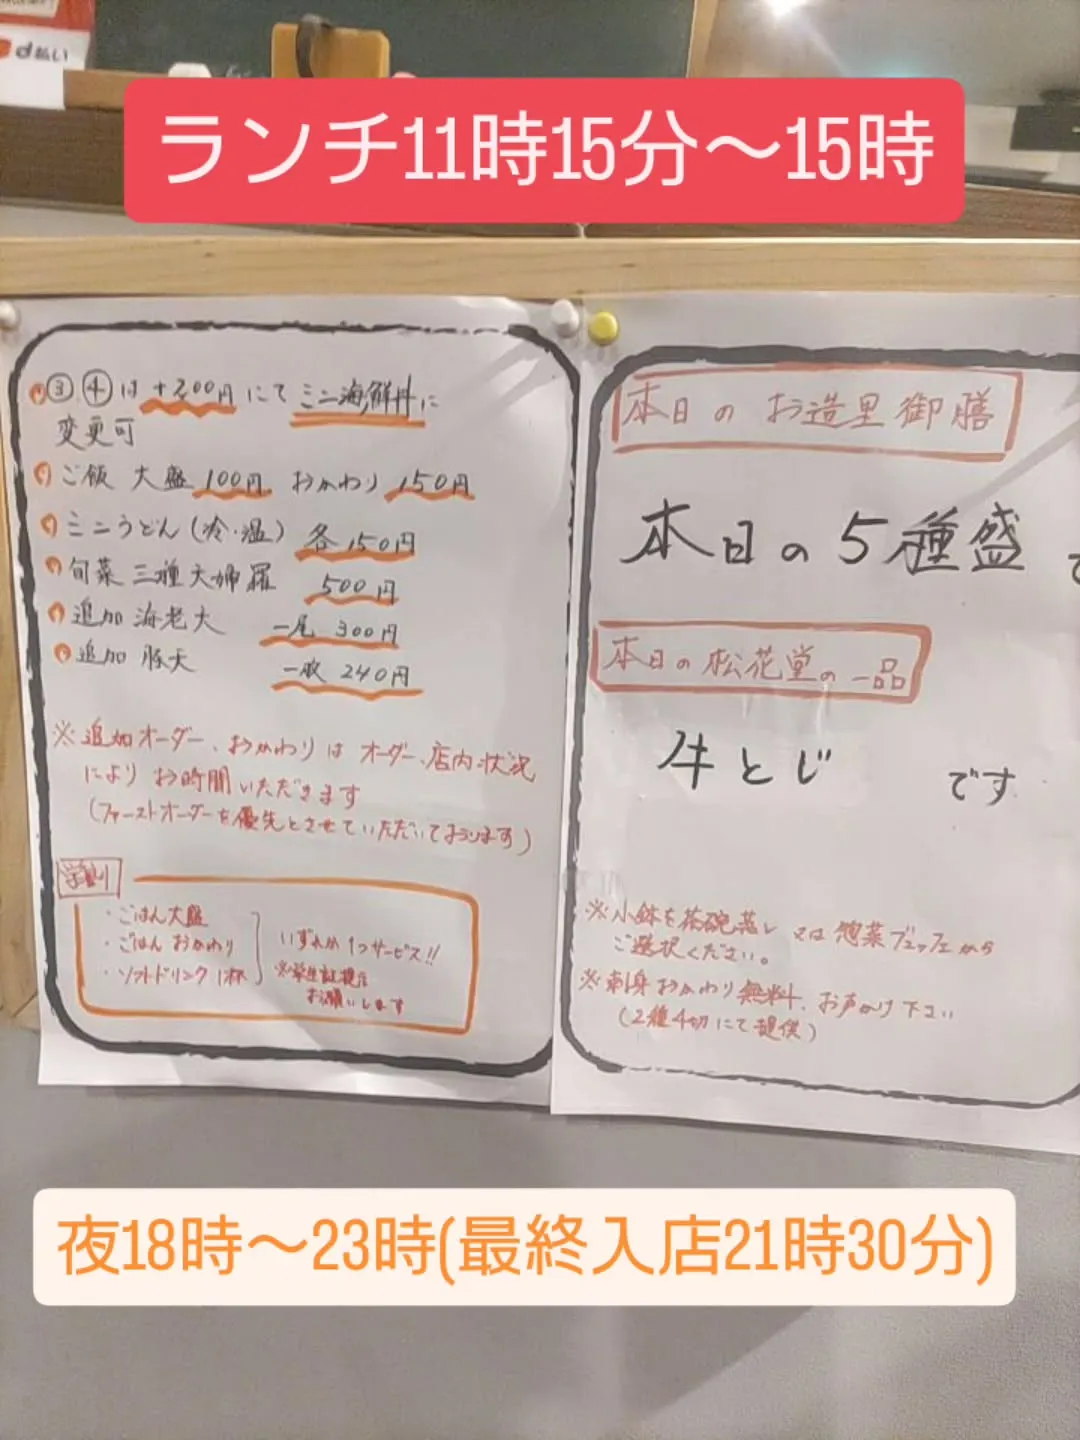 d払い
ランチ11時15分〜15時
③④は+200円にてミニ海鮮丼に
変更可
ご飯 大盛 100円 おかわり 150円
ミニうどん(冷・温) 各150円
旬菜三種天婦羅 500円
追加 海老天 一尾 300円
追加 豚天 一枚 240円
※追加オーダー、おかわりはオーダー、店内状況
によりお時間いただきます
(ファーストオーダーを優先とさせていただいております)
学割
・ごはん大盛
・ごはんおかわり
・ソフトドリンク1杯
いずれか1つサービス!!
※学生証提示
お願いします
本日のお造里御膳
本日の5種盛
本日の松花堂の一品
牛とじ です
※小鉢を茶碗蒸し又は惣菜ブュッフェから
ご選択ください。
※刺身おかわり無料、お声かけ下さい
(2種4切にて提供)
夜18時〜23時(最終入店21時30分)